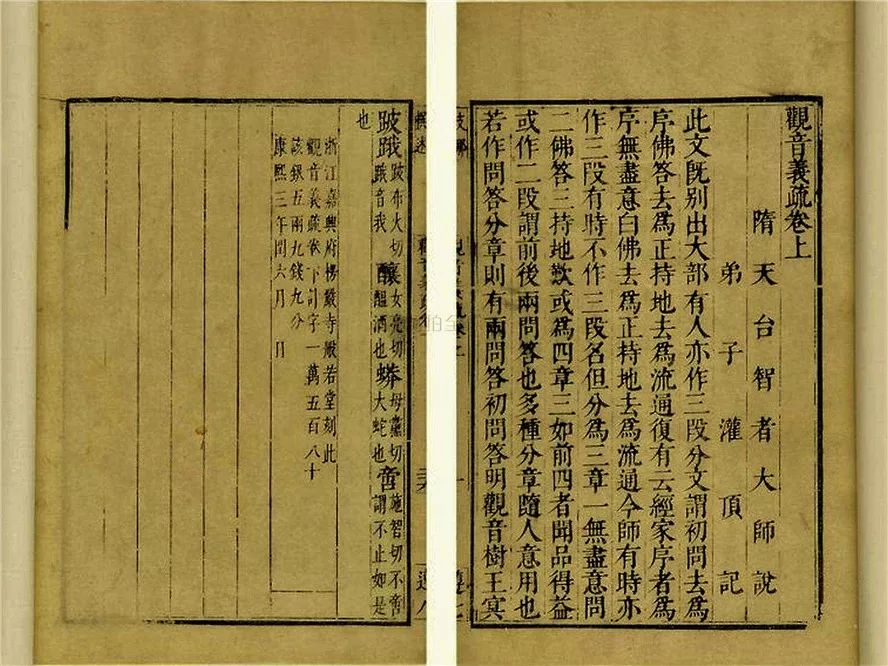 觀音義疏卷上
隋天台智者大師說
弟子灌頂記
此文既別出大部有人亦作三段分文謂初問去爲
序佛答去爲正持地去爲流通復有云經家序者爲
序無盡意白佛去爲正持地去爲流通今師有時亦
作三段有時不作三段名但分爲三章一無盡意問
二佛答三持地歎或爲四章三如前四者聞品得益
或作二段謂前後兩問答也多種分章隨人意用也
若作問答分章則有兩問答初問答明觀音樹王冥
跛跛布火切䟦䟦音我釀女亮切醞酒也蟒母黨切大蛇也啻施智切不啻謂不止如是
也
浙江嘉興府楞嚴寺般若堂刻此
觀音義疏卷下計字一萬五百八十
該銀五兩九錢九分
康熙三年閏六月 日